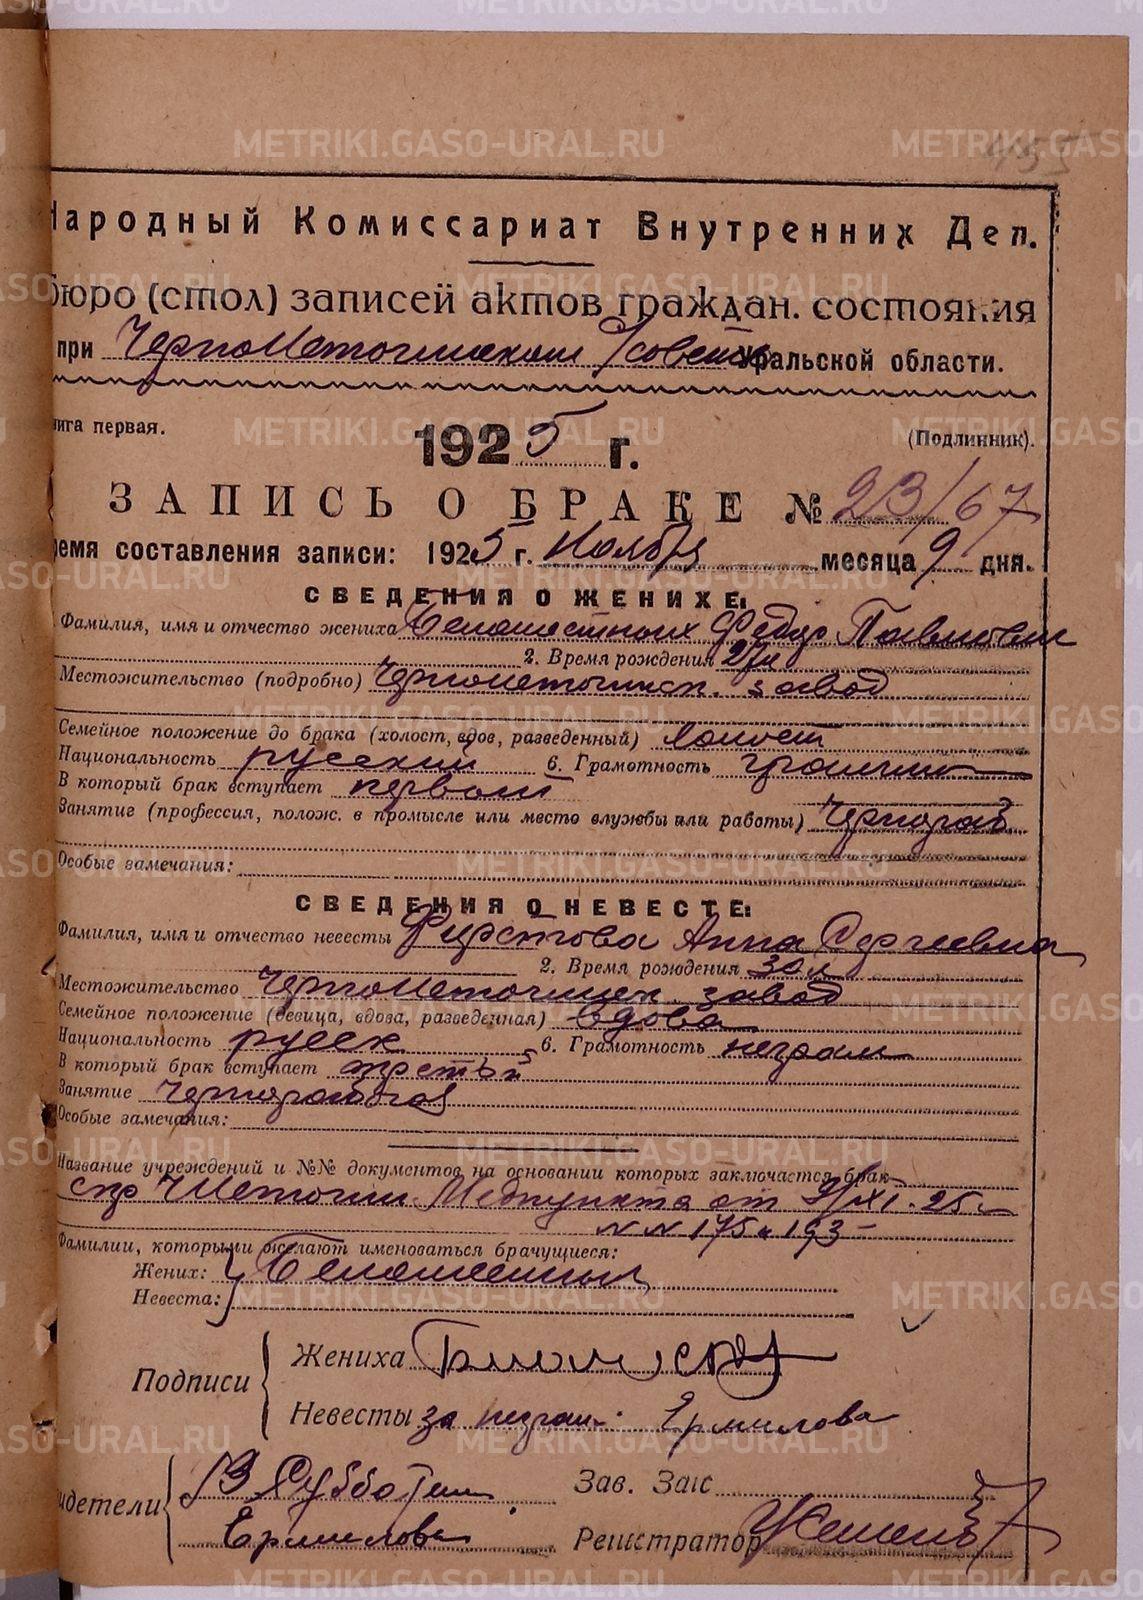 455
Народный Комиссариат Внутренних Дел.
Бюро (стол) записей актов граждан. состояния
при Черноисточинском Уральской области.
Книга первая. (Подлинник).
1925 г.
ЗАПИСЬ О БРАКЕ № 23/67
Время составления записи: 1925 г. Ноября месяца 9 дня.
СВЕДЕНИЯ О ЖЕНИХЕ:
Фамилия, имя и отчество жениха Федор Павлович
2. Время рождения 27 л
Местожительство (подробно) Черноисточинск. завод
Семейное положение до брака (холост, вдов, разведенный) холост
Национальность русский 6. Грамотность
В который брак вступает первый
Занятие (профессия, полож. в промысле или место службы или работы) Чернораб
Особые замечания:
СВЕДЕНИЯ О НЕВЕСТЕ:
Фамилия, имя и отчество невесты Фирстова Анна Сергеевна
2. Время рождения 30 л
Местожительство Черноисточинск. завод
Семейное положение (девица, вдова, разведенная) вдова
Национальность русск 6. Грамотность неграм
В который брак вступает третий
Занятие Чернорабочая
Особые замечания:
Название учреждений и №№ документов, на основании которых заключается брак
спр Медпункта от 9/XI-25 г
N N 175 и 193-
Фамилии, которыми желают именоваться брачущиеся:
Жених:
Невеста:
Подписи
Жениха
Невесты за неграм. Ермилова
Свидетели
Субботин Зав. Загс
Ермилова Регистратор
METRIKI.GASO-URAL.RU